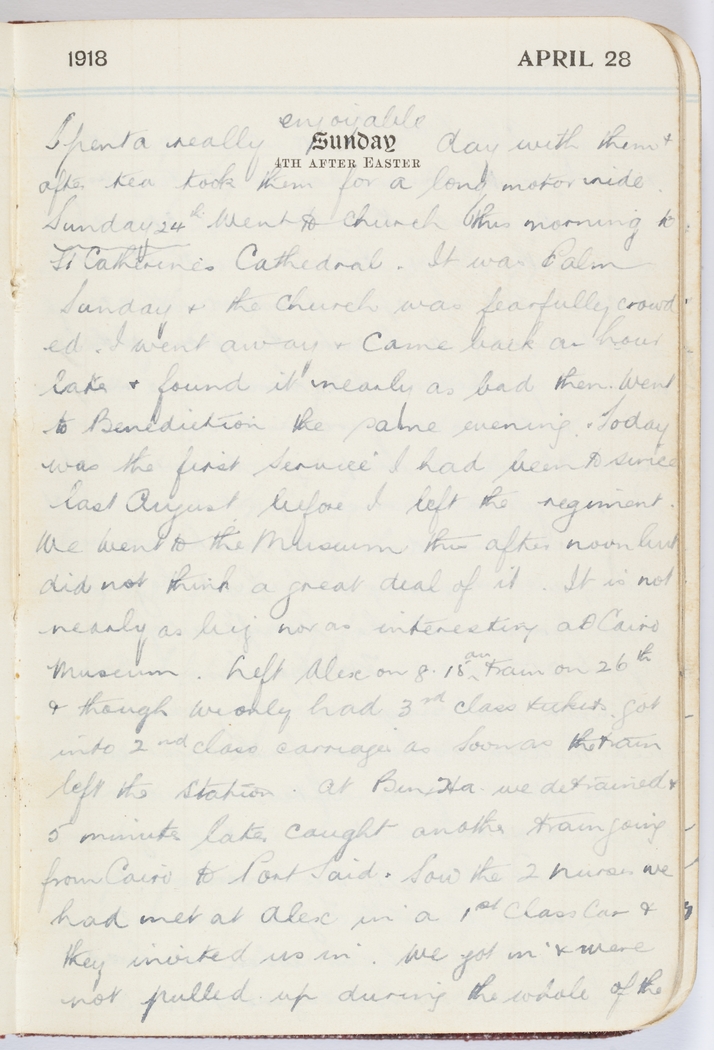 1918 APRIL 28
Sunday
4TH AFTER EASTER
Spent a really enjoyable day with them &
after tea took them for a long motor ride.
Sunday 24th Went to church this morning to
St Catherine's Cathedral. It was Palm
Sunday & the church was fearfully crowd
ed. I went away & came back an hour
later & found it nearly as bad then. Went
to Benediction the same evening. Today
was the first service I had been to since
last August before I left the regiment.
We went to the Museum this after noon but
did not think a great deal of it. It is not
nearly as big nor as interesting as Cairo
Museum. Left Alex on 8.15 am train on 26th
& though we only had 3rd class tickets got
into 2nd class carriage as soon as the train
left the station. At Ben Ha we detrained &
5 minutes later caught another train going
from Cairo to Port Said. Saw the 2 nurses we
had met at Alex in a 1st Class Car &
they invited us in. We got in & were
not pulled up during the whole of the